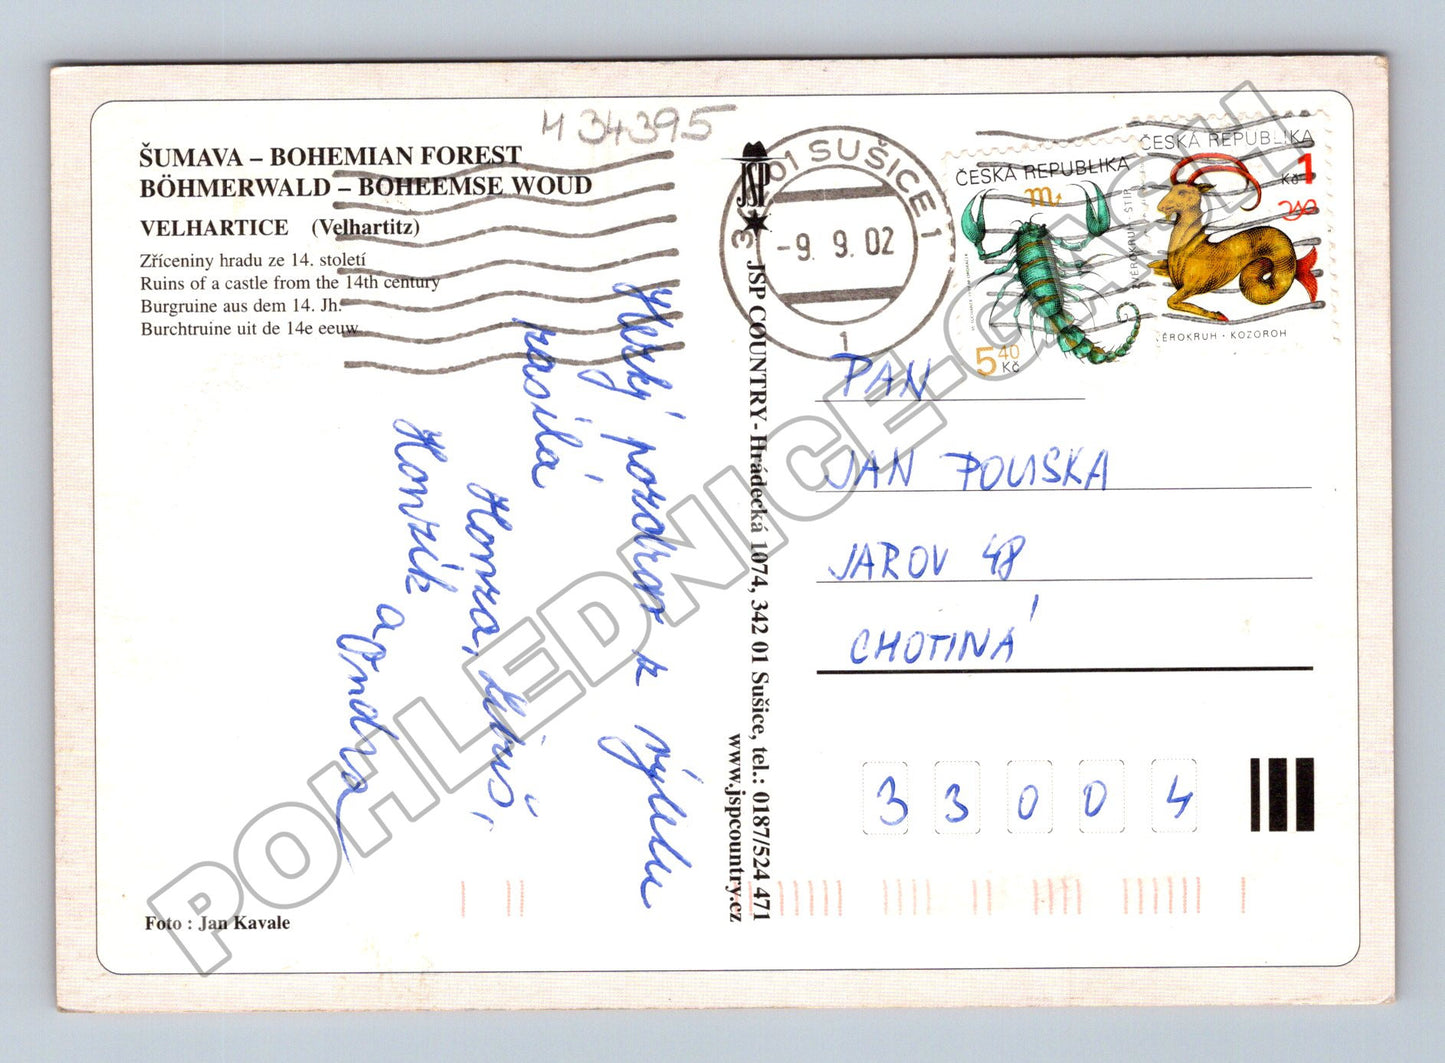 M 34395
ŠUMAVA – BOHEMIAN FOREST
BÖHMERWALD – BOHEEMSE WOUD
VELHARTICE (Velhartitz)
Zříceniny hradu ze 14. století
Ruins of a castle from the 14th century
Burgruine aus dem 14. Jh.
Burchtruine uit de 14e eeuw
Hezký pozdrav z výletu
zasílá
Honza,
Honzík a Ondra
Foto : Jan Kavale
JSP
JSP COUNTRY - Hrádecká 1074, 342 01 Sušice, tel.: 0187/524 471
www.jspcountry.cz
01 SUŠICE 1
-9. 9. 02
1
ČESKÁ REPUBLIKA
5 40 Kč
ČESKÁ REPUBLIKA
1 Kč
ZVĚROKRUH - ŠTÍR
ĚROKRUH - KOZOROH
PAN
JAN POUSKA
JAROV 48
CHOTINÁ
33004
POHLEDNICE-CASH